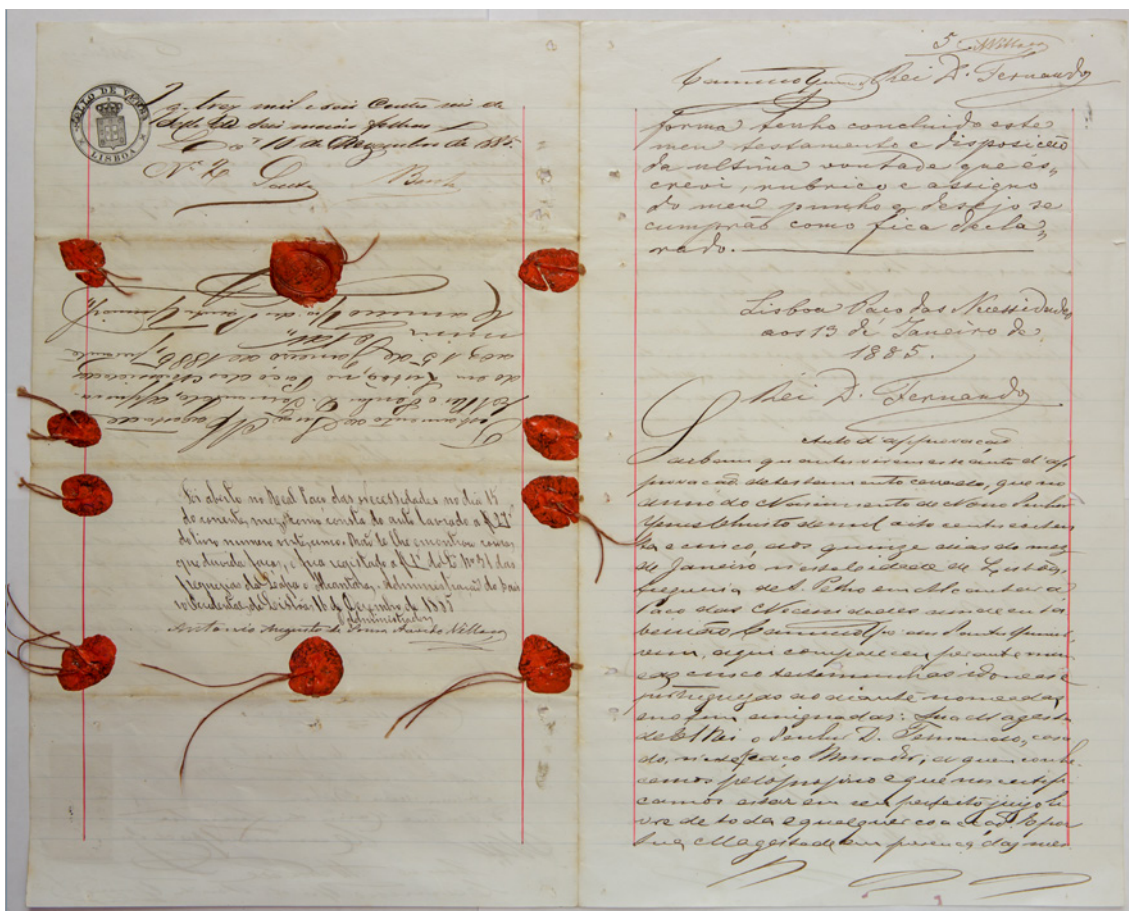 SELLO DE VERBA
LISBOA
Pg. trez mil e seis Centos reis de
Sello de seis meias folhas
Lx.ª 18 de Dezembro de 1885
Nº
Testamento de Sua Magestade
El Rei o Senhor D. Fernando, approva-
do em Lisboa, no Paço das Necessidades
aos 15 de Janeiro de 1885, perante
mim
O Tab.
Foi aberto no Real Paço das Necessidades no dia 15
do corrente mez, como consta do auto lavrado a f
do livro numero vinte e cinco. Não se lhe encontrou cousa
que duvida faça, e fica registado a f do Lº Nº 51 das
freguezias da Lapa e Alcantara. Administração do Bair
ro Occidental de Lisboa 18 de Dezembro de 1885
O Administrador
Antonio Augusto de Sousa Azevedo Villaça
5 Villaça
Rei D. Fernando
forma tenho concluido este
meu testamento e disposição
da ultima vontade que es„
crevi, rubrico e assigno
do meu punho e desejo se
cumprão como fica decla„
rado.
Lisboa Paço das Necessidades
aos 13 de Janeiro de
1885.
Rei D. Fernando
Auto d'approvação
Saibam quantos virem este auto d'ap
provação de testamento cerrado, que no
anno do Nascimento de Nosso Senhor
Jesus Christo de mil oito centos oiten
ta e cinco, aos quinze dias do mez
de Janeiro, n'esta cidade de Lisboa,
freguezia de S. Pedro em Alcantara
Paço das Necessidades aonde eu ta
bellião
vim, aqui compareceu perante mim
e as cinco testemunhas idoneas e
portuguezas ao diante nomeadas
e no fim assignadas: Sua Magesta
de El Rei o Senhor D. Fernando, casa
do, n'este Paço Morador, a quem conhe
cemos pelo proprio e que nos certifi
camos estar em seu perfeito juizo li
vre de toda e qualquer coacção. E por
Sua Magestade em presença das mes